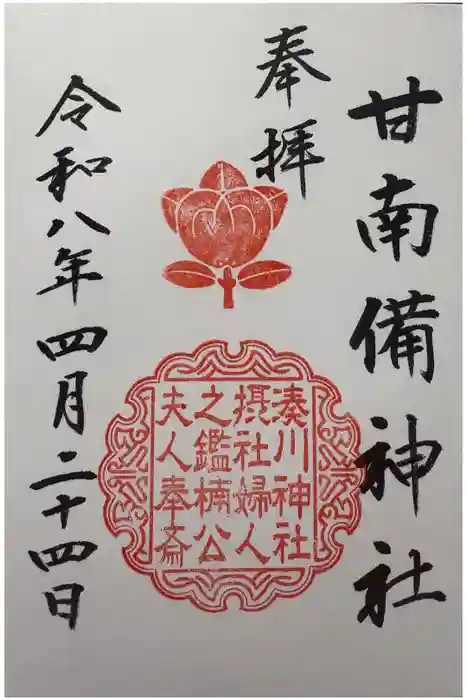 甘南備神社
奉拝
湊川神社
摂社婦人
之鑑楠公
夫人奉斎
令和八年四月二十四日